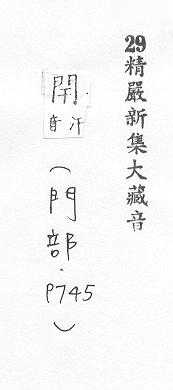 29精嚴新集大藏音
開
汗音
(門部.P745)